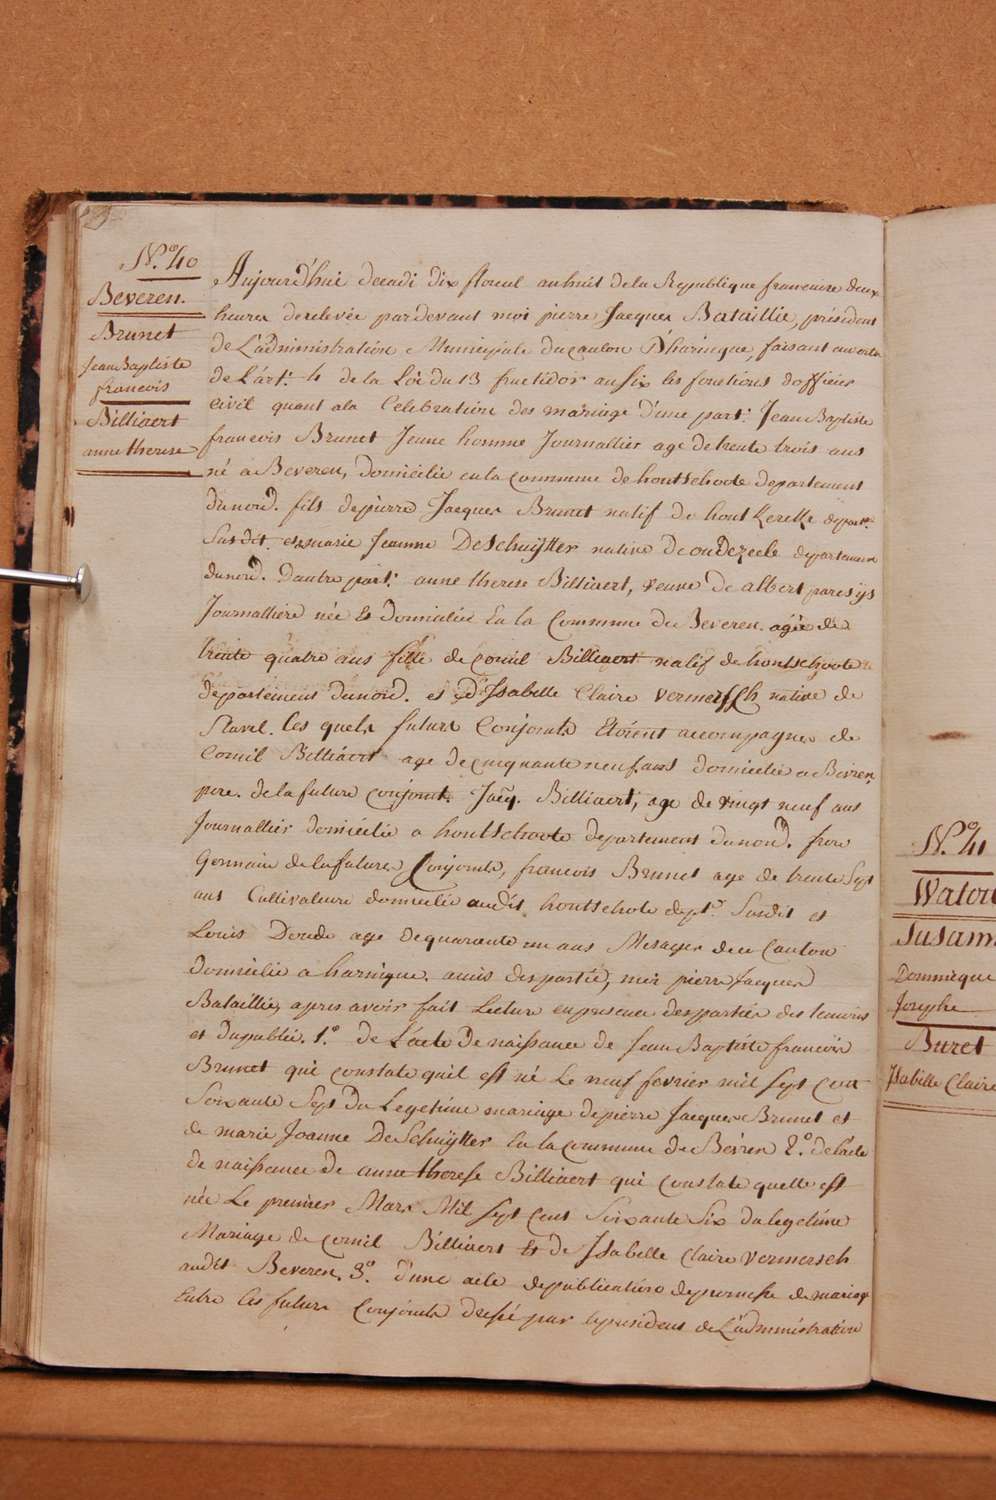 N.° 40
Beveren.
Brunet
Jean Baptiste
francois
Billiaert
anne therese
Aujourd'hui decadi dix floreal an huit de la Republique francaise deux
heures de relevée pardevant moi pierre Jacques Bataillie, président
de L'administration Municipale du canton D'haringue, faisant en vertu
de L'art: 4 de la Loi du 13 fructidor an six les fonctions d'officier
civil quant a la Celebration des mariage d'une part: Jean Baptiste
francois Brunet Jeune homme Journallier age de trente trois ans
né a Beveren, domicilié en la Commune de hontschoote departement
du nord. fils de pierre Jacques Brunet natif de hout Kerke depart.
Susdit et marie Jeanne DeSchuÿtter native de oudezeele departement
du nord. D'autre part: anne therese Billiaert, veuve de albert paresijs
Journalliere née et Domiciliée En la Commune de Beveren agée de
trente quatre ans fille de Cornil Billiaert natif de hontschoote
departement du nord. et d'Isabelle Claire vermersch native de
Stavel. Les quels future Conjoints Etoient accompagnes de
Cornil Billiaert age de cinquante neuf ans domicilié a Bevren,
pere. de la future conjoint. Jacq. Billiaert, age de vingt neuf ans
Journallier domicilié a hontschoote departement du nord. frere
Germain de la future Conjointe, francois Brunet age de trente Sept
ans Cultivateur domicilié audit hontschote dept. Susdit et
Louis Doude age de quarante un ans Mesager de ce Canton
domicilié a haringue. amis des partie, moi pierre Jacques
Bataillie, apres avoir fait Lecture en presence des partie des temoins
et du public. 1.° de L'acte de naissance de Jean Baptiste francois
Brunet qui constate qu'il est né Le neuf fevrier mil sept cent
Soixante Sept du Legetime mariage de pierre Jacques Brunet et
de marie Joanne DeSchuÿtter En la commune de Bevren 2.° de l'acte
de naissance de anne therese Billiaert qui constate quelle est
née Le premier Mars Mil sept Cent Soixante Six du legetime
Mariage de Cornil Billiaert Et de Isabelle Claire Vermersch
audit Beveren. 3.° d'une acte de publication de promesse de mariage
Entre Les future Conjoints dressé par le president de L'administration
N.° 41
Watou
Susam
Dominique
Josephe
Buret
Isabelle Claire